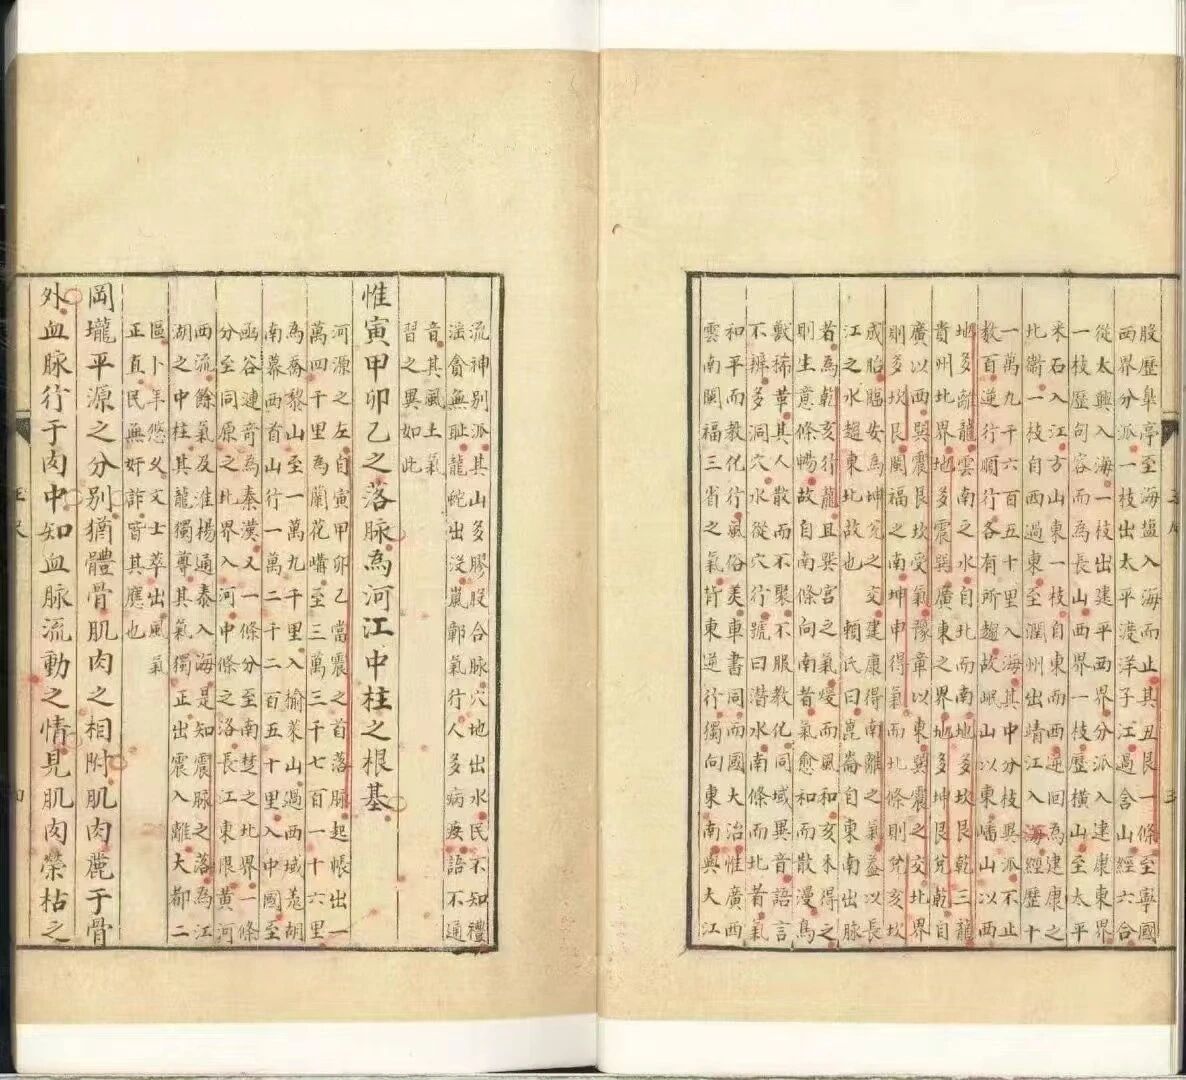 股歷皐亭至海盬入海而止其丑艮一條至寧國
西界分派一枝出太平渡洋子江過含山經六合
從太興入海一枝出建平西界分派入建康東界
一枝歷句容而為長山西界一枝歷橫山至太平
采石入江方山東一枝自東而西逆回為建康之
北衛一枝自西過東至潤州出靖江入海經歷十
一萬九千六百五十里入海其中分枝異派不止
數百逆行順行各有所趨故岷山以東嶓山以西
地多離龍雲南之水自北而南地多坎艮乾三龍
貴州北界地多震巽廣東之界地多坤艮兌乾自
廣以西巽震艮坎受氣豫章以東巽震之交北界
則多坎艮閩福之南坤申得氣而北條則兌亥坎
成胎臨安為坤兌之交建康得南離之氣益以長
江之水趨東北故也 賴氏曰崑崙自東南出脉
者為乾亥行龍且巽宮之氣煖而風和亥未得之
則生意條暢故自南條向南者氣愈和而散漫鳥
獸稀革其人散而不聚不服教化同域異音語言
不辨多洞穴水從穴行號曰潛水南條而北者氣
和平而教化行風俗美車書同而國大治惟廣西
雲南閩福三省之氣皆東逆行獨向東南與大江
流神別派其山多膠股合脉穴地出水民不知禮
滛貪無耻龍蛇出沒嵐鄣氣行人多病疾語不通
音其風土氣
習之異如此
惟寅甲卯乙之落脉為河江中柱之根基
河源之左自寅甲卯乙當震之首落脉起帳出一
萬四千里為蘭花嶙至三萬三千七百一十六里
為喬黎山至一萬九千里入榆菜山過西域羗胡
南幕西首山行一萬二千二百五十里入中國至
函谷連奇為秦漢又一條分至南楚之北界一條
分至同原之北界入河中條之洛長江東限黄河
西流餘氣及淮楊通泰入海是知震脉之落為江
湖之中柱其龍獨尊其氣獨正出震入離大都二
區卜年悠久文士萃出風氣
正直民無奸詐皆其應也
岡壠平源之分別猶體骨肌肉之相附肌肉麗于骨
外血脉行于肉中知血脉流動之情見肌肉榮枯之